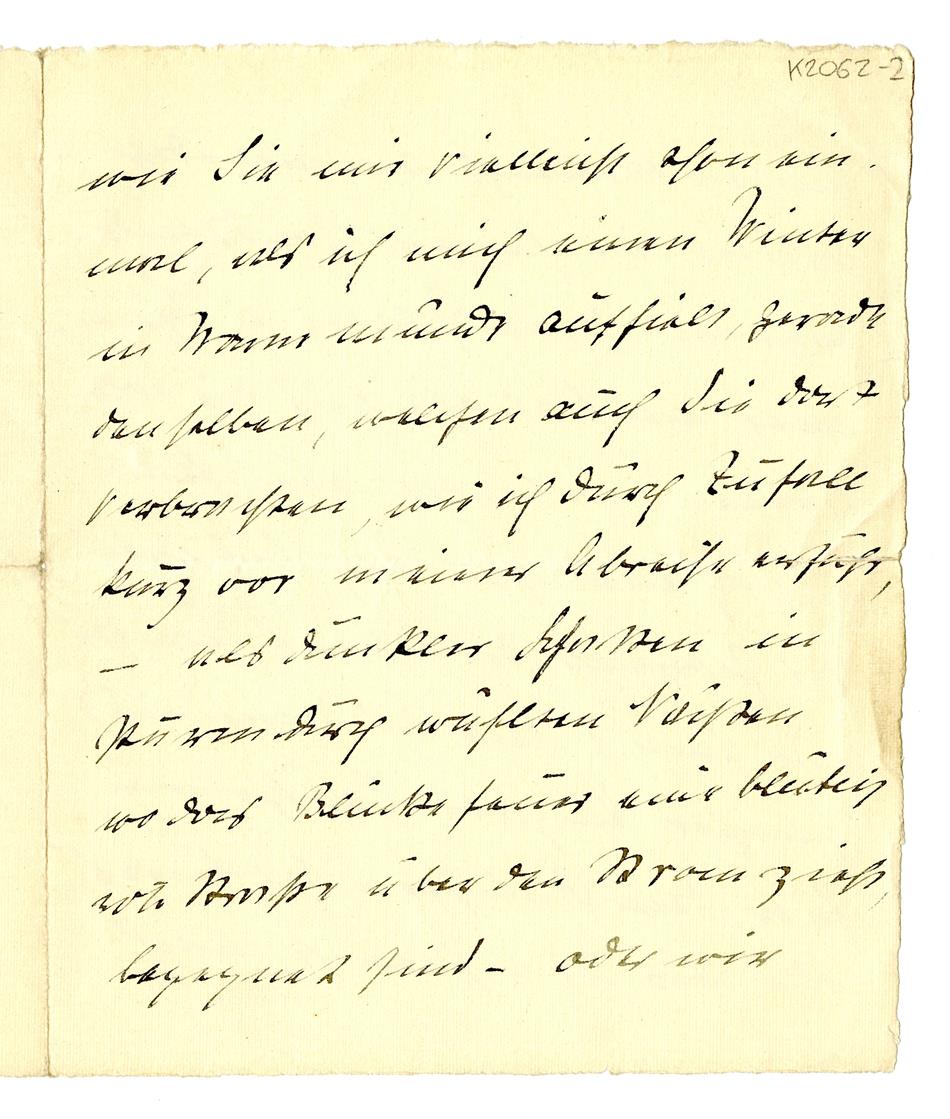 K2062-2
wie Sie mir vielleicht schon ein-
mal, als ich mich einen Winter
in Warnemünde aufhielt, gerade
denselben, welchen auch Sie dort
verbrachten, wie ich durch Zufall
kurz vor meiner Abreise erfuhr,
– als dunkler Schatten in
sturmdurchwühlten Nächten
wo das Blinkefeuer eine blutig
rote Straße über den Strom zieht,
begegnet sind – oder wir